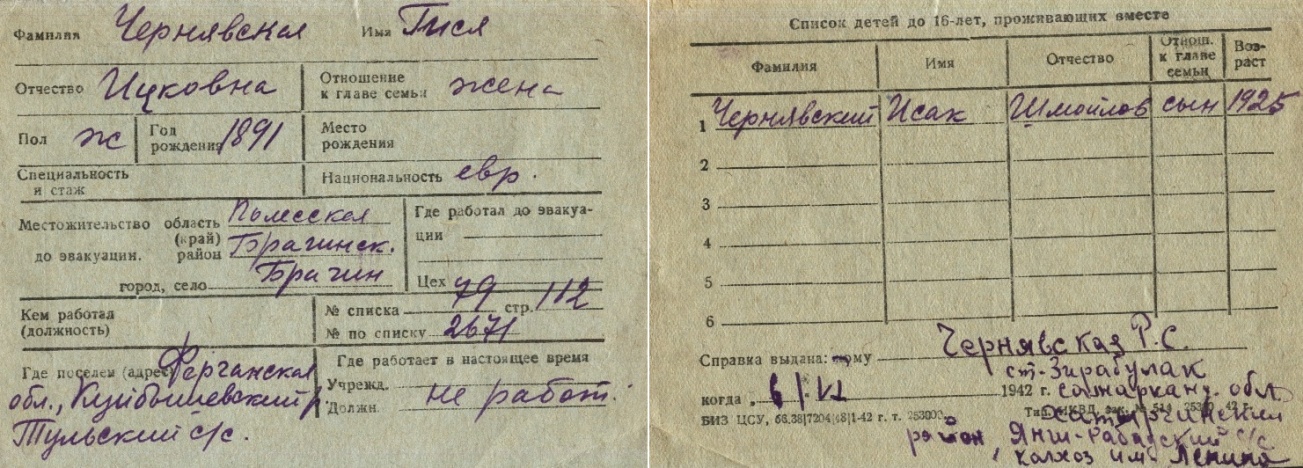 Фамилия Чернявская Имя Гися
Отчество Ицковна Отношение к главе семьи жена
Пол ж Год рождения 1891 Место рождения
Специальность и стаж Национальность евр.
Местожительство до эвакуации. область (край) Полесская
район Брагинск.
город, село Брагин
Где работал до эвакуации
Цех
Кем работал (должность)
№ списка 79 стр. 112
№ по списку 2671
Где поселен (адрес) Ферганская
обл., Куйбышевский р.
Тульский с/с.
Где работает в настоящее время
Учрежд.
Должн. не работ.
Список детей до 16-лет, проживающих вместе
Фамилия Имя Отчество Отнош. к главе семьи Возраст
1 Чернявский Исак Шмойлов сын 1925
2
3
4
5
6
Справка выдана: кому Чернявская Р.С.
ст. Зирабулак
когда 6/VI 1942 г. самарканд. обл.
БИЗ ЦСУ, 66.38|7204|48|1-42 г. т.
район, Янги-Рабадский с/с
колхоз им. Ленина